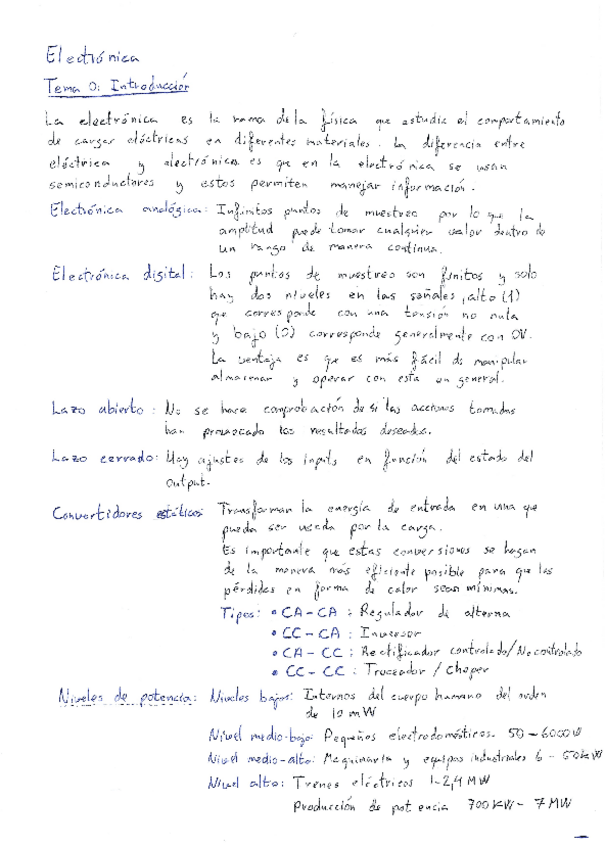 Electrónica
Tema 0: Introducción
La electrónica es la rama de la física que estudia el comportamiento
de cargas eléctricas en diferentes materiales. La diferencia entre
eléctrica y electrónica es que en la electrónica se usan
semiconductores y estos permiten manejar información.
Electrónica analógica: Infinitos puntos de muestreo por lo que la
amplitud puede tomar cualquier valor dentro de
un rango de manera continua.
Electrónica digital: Los puntos de muestreo son finitos y solo
hay dos niveles en las señales, alto (1)
que corresponde con una tensión no nula
y bajo (0) corresponde generalmente con 0V.
La ventaja es que es más fácil de manipular
almacenar y operar con esta en general.
Lazo abierto: No se hace comprobación de si las acciones tomadas
han provocado los resultados deseados.
Lazo cerrado: Hay ajustes de los inputs en función del estado del
output.
Convertidores estáticos: Transforman la energía de entrada en una que
pueda ser usada por la carga.
Es importante que estas conversiones se hagan
de la manera más eficiente posible para que las
pérdidas en forma de calor sean mínimas.
Tipos: • CA-CA: Regulador de alterna
• CC-CA: Inversor
• CA-CC: Rectificador controlado/No controlado
• CC-CC: Troceador / Choper
Niveles de potencia: Niveles bajos: Internos del cuerpo humano del orden
de 10 mW
Nivel medio-bajo: Pequeños electrodomésticos. 50-6000W
Nivel medio-alto: Maquinaria y equipos industriales 6-50kW
Nivel alto: Trenes eléctricos 1-2,4 MW
Producción de potencia 700KW-7MW